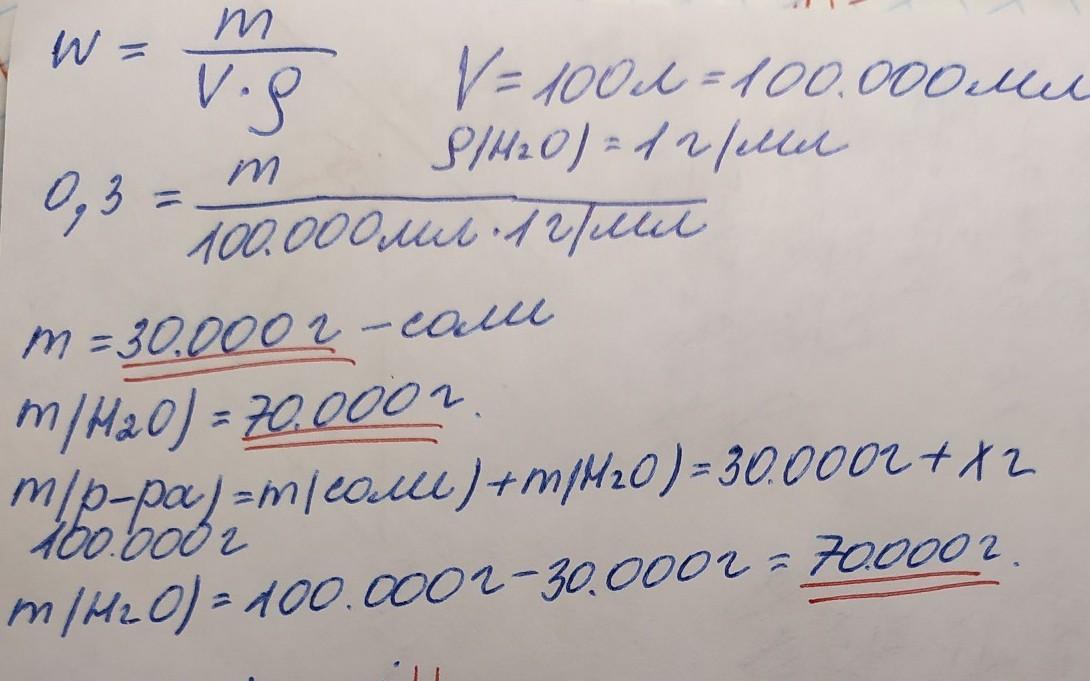 w = m / V · ρ
V = 100л = 100.000мл
ρ(H₂O) = 1 г/мл
0,3 = m / 100.000мл · 1 г/мл
m = 30.000 г – соли
m(H₂O) = 70.000 г.
m(р-ра) = m(соли) + m(H₂O) = 30.000г + х г
100.000г
m(H₂O) = 100.000г – 30.000г = 70.000 г.